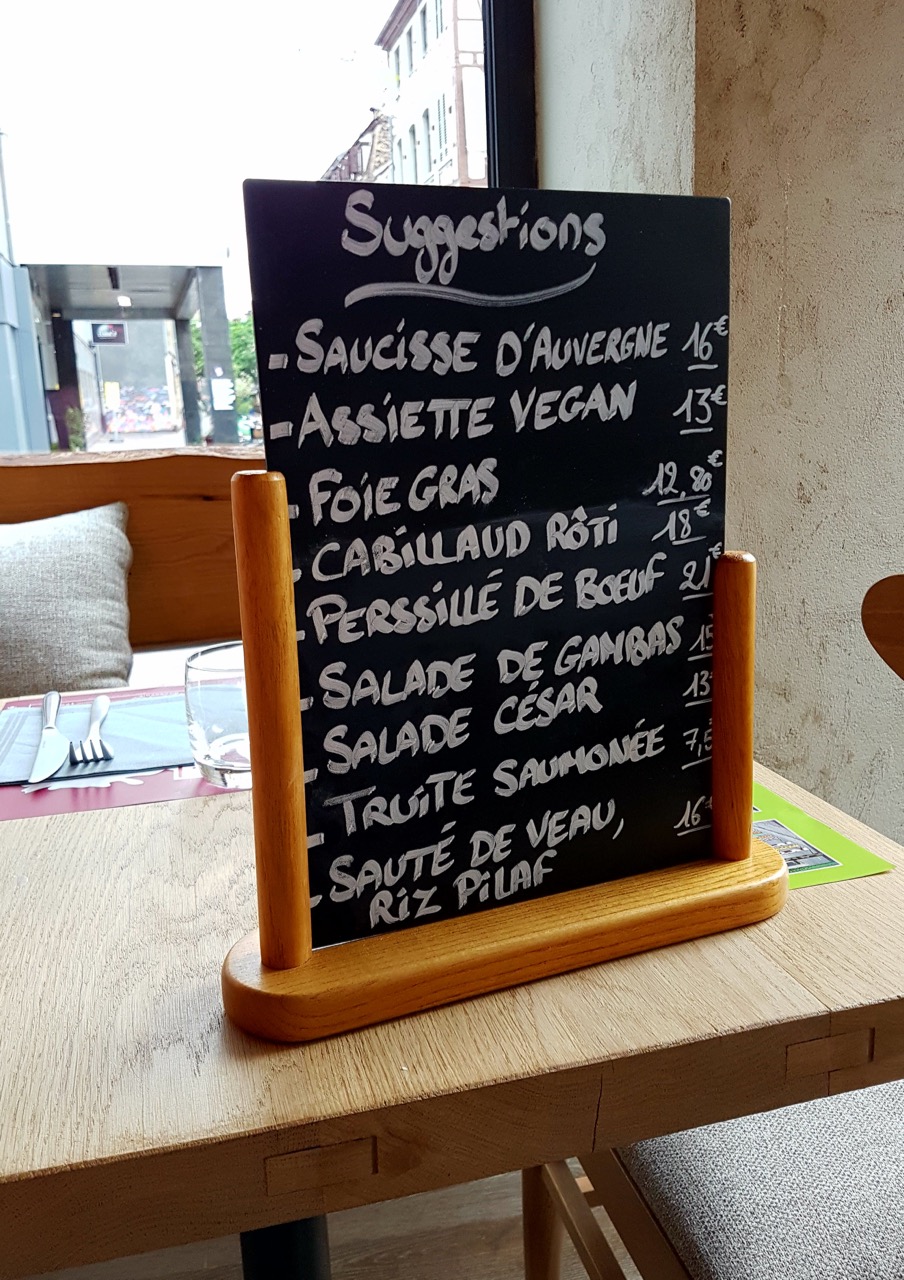 Suggestions
- SAUCISSE D'AUVERGNE 16€
- ASSIETTE VEGAN 13€
- FOIE GRAS 12,80€
- CABILLAUD RÔTI 18€
- PERSSILLÉ DE BOEUF 21€
- SALADE DE GAMBAS 15
- SALADE CÉSAR 13
- TRUITE SAUMONÉE 7,5
- SAUTÉ DE VEAU, 16€
RIZ PILAF